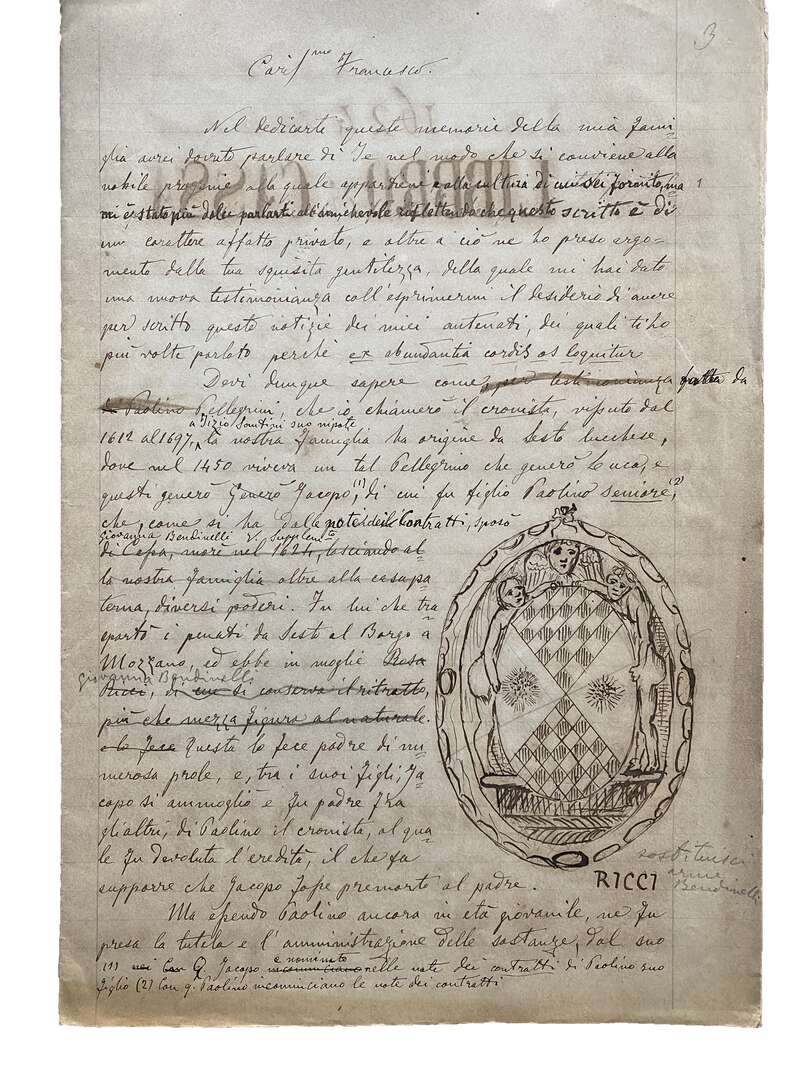 3
Cariss.mo Francesco.
Nel dedicarte queste memorie della mia fami-
glia avrei dovuto parlare di Te nel modo che si conviene alla
nobile progenie alla quale appartieni e alla cultura di cui sei fornito, ma
mi è stato più dolce parlarti all'amichevole riflettendo che questo scritto è di
un carattere affatto privato, e oltre a ciò ne ho preso argo-
mento dalla tua squisita gentilezza, della quale mi hai dato
una nuova testimonianza coll'esprimermi il desiderio di avere
per scritto queste notizie dei miei antenati, dei quali ti ho
più volte parlato perché ex abundantia cordis os loquitur
Devi dunque sapere come, per testimonianza fatta da
Paolino Pellegrini, che io chiamerò il cronista, vissuto dal
a Tizio Santini suo nipote
1612 al 1697, la nostra famiglia ha origine da Sesto lucchese,
dove nel 1450 viveva un tal Pellegrino che generò Luca, e
questi generò Generò Jacopo, (1) di cui fu figlio Paolino seniore, (2)
che, come si ha dalle note dei Contratti, sposò
Giovanna Bendinelli V. Supplem.to
di Cepa, morè nel 1624, lasciando al-
la nostra famiglia oltre alla casa pa-
terna, diversi poderi. Fu lui che tra
sportò i penati da Sesto al Borgo a
Mozzano, ed ebbe in moglie Rosa
giovanna Bendinelli
Ricci, di cui si conserva il ritratto,
più che mezza figura al naturale.
e lo fece Questa lo fece padre di nu-
merosa prole, e, tra i suoi figli, Ja-
copo si ammogliò e fu padre fra
gli altri, di Paolino il cronista, al qua-
le fu devoluta l'eredità, il che fa
supporre che Jacopo fosse premorto al padre.
RICCI
sostituisci
arme
Bendinelli
Ma essendo Paolino ancora in età giovanile, ne fu
presa la tutela e l'amministrazione delle sostanze, dal suo
(1) nei Con Q. Jacopo è nominato incominciano nelle note dei contratti di Paolino suo
figlio (2) Con q. Paolino incominciano le note dei contratti